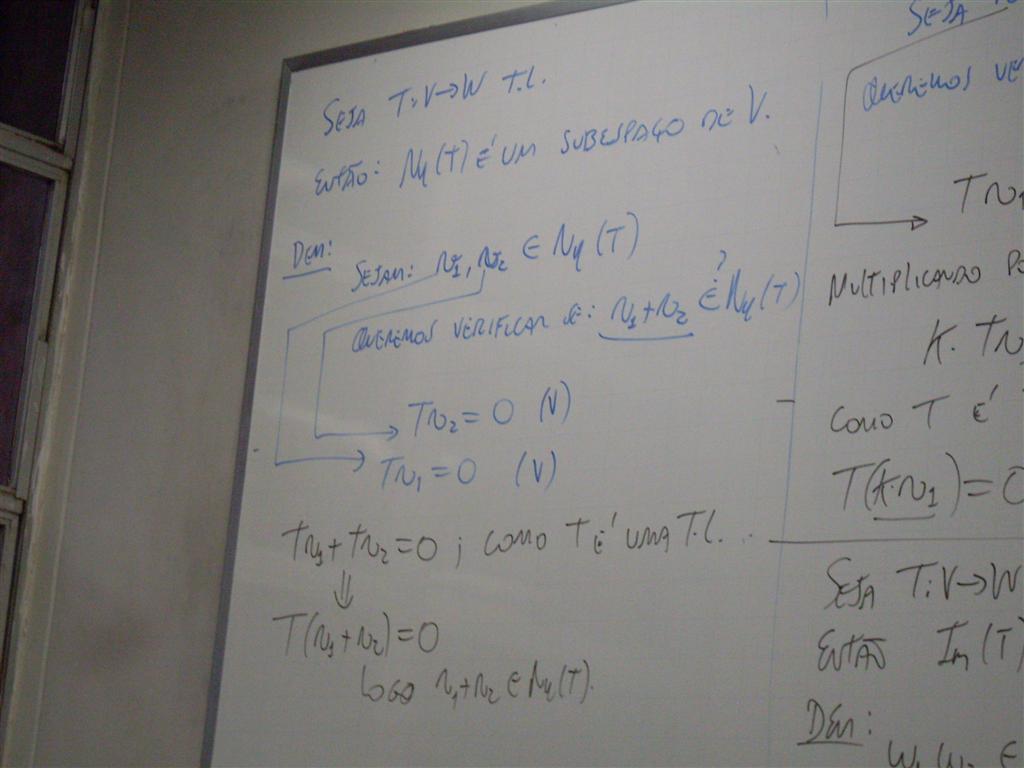 SEJA T:V→W T.L.
ENTÃO: Nu(T) É UM SUBESPAÇO DE V.
DEM:
SEJAM: v₁, v₂ ∈ Nu(T)
QUEREMOS VERIFICAR SE: v₁+v₂ ∈? Nu(T)
Tv₂ = 0 (V)
Tv₁ = 0 (V)
Tv₁ + Tv₂ = 0 ; COMO T É UMA T.L. ..
⇓
T(v₁+v₂) = 0
LOGO v₁+v₂ ∈ Nu(T).
SEJA
QUEREMOS
Tv₁
MULTIPLICANDO
K. Tv₁
COMO T É
T(k.v₁) = 0
SEJA T:V→W
ENTÃO Im(T)
DEM:
W₁, W₂ ∈